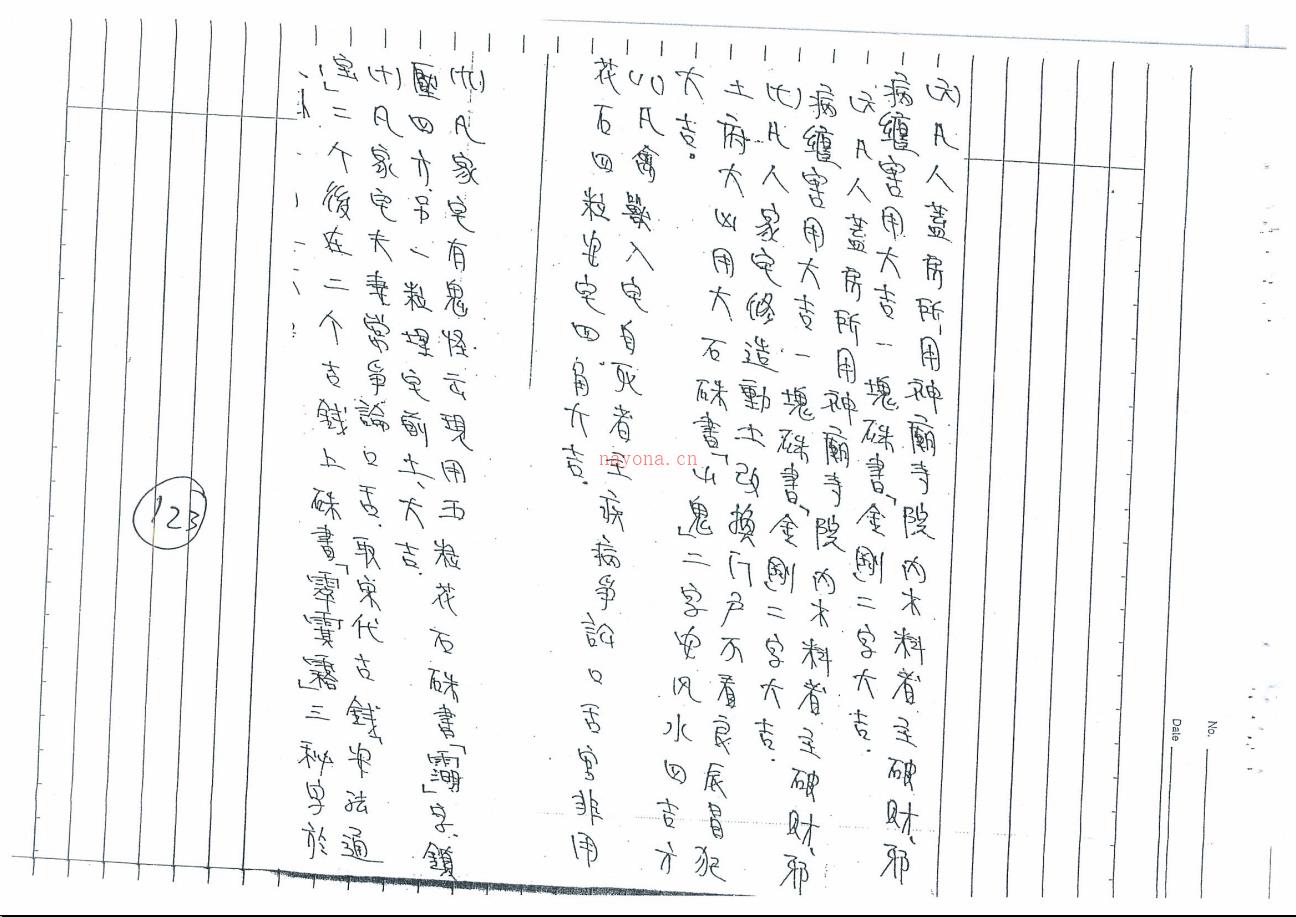 (六)凡人蓋房所用神廟寺院內木料者主破財、邪
病纏害用大吉一塊硃書「金剛二字大吉.
(六)凡人蓋房所用神廟寺院內木料者主破財、邪
病纏害用大吉一塊硃書「金剛二字大吉.
(七)凡人家宅修造動土改換门户不看良辰冒犯
土府大凶用大石硃書「山鬼」二字安风水四吉方
大吉.
(八)凡禽獸入宅自死者主疾病爭論口舌害非用
花石四粒安宅四角大吉.
(九)凡家宅有鬼怪云現用五粒花石硃書「」字.鎮
壓四方吊一粒埋宅前土、大吉.
(十)凡家宅夫妻常爭論口舌.取宋代古錢安法通
宝」二个後在二个古錢上硃書「」三秘字於
123
No.
Date
nayona.cn